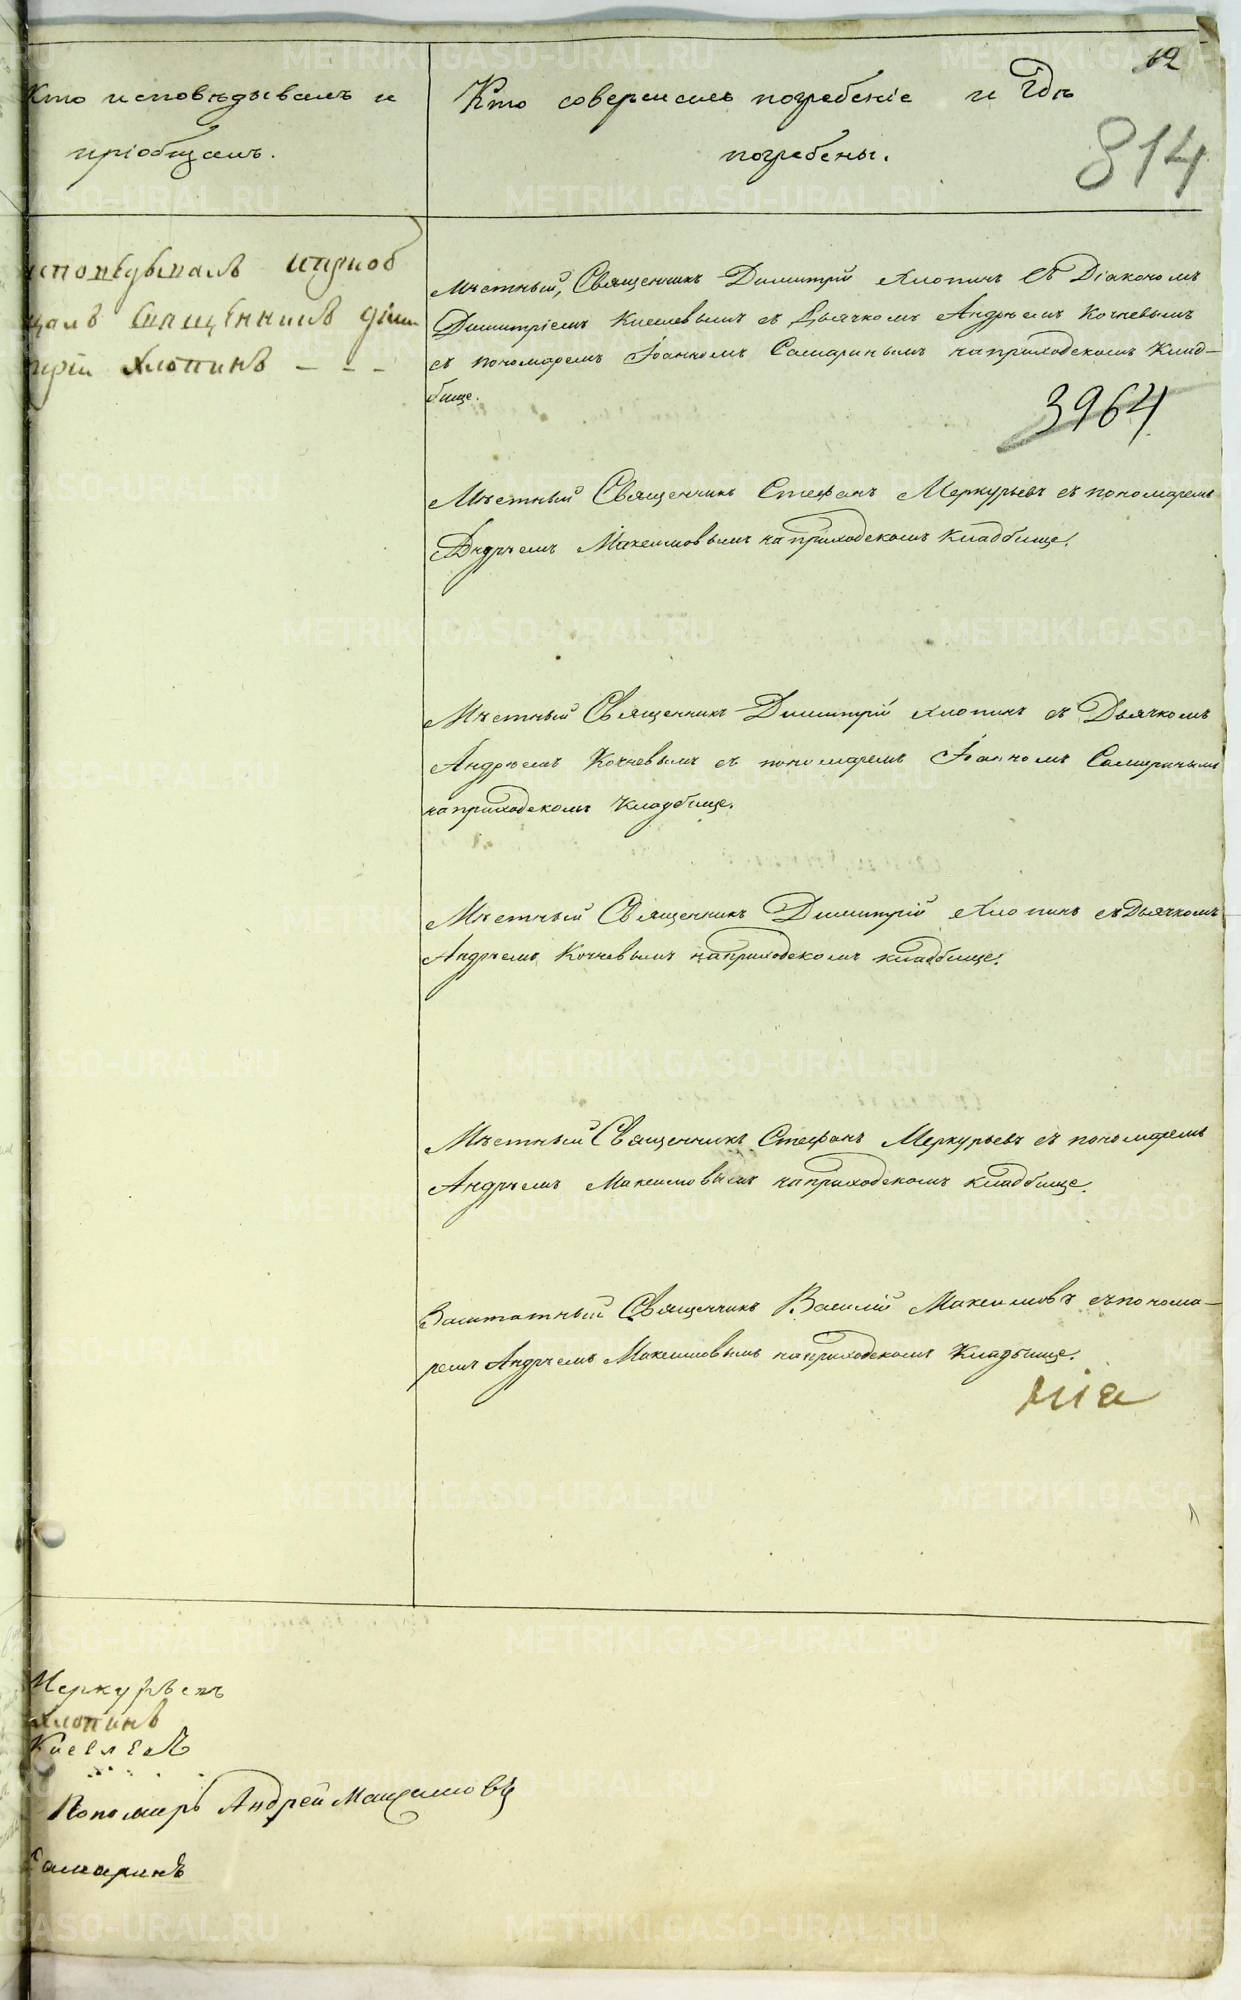 12
814
Кто исповѣдывалъ и
пріобщалъ.
Кто совершалъ погребеніе и гдѣ
погребены.
исповѣдывалъ иприоб
щалъ Священникъ Дми
трій Хлопинъ - - -
Мѣстный, Священникъ Димитрій Хлопинъ съ Діакономъ
Димитріемъ Киселевымъ съ Дьячкомъ Андрѣемъ Кочневымъ
съ пономаремъ Іоанномъ Самаринымъ наприходскомъ Клад-
бище.
3964
Мѣстный Священникъ Стефанъ Меркурьевъ съ пономаремъ
Андрѣемъ Максимовымъ на приходскомъ Кладбище.
Мѣстный Священникъ Димитрій Хлопинъ съ Дьячкомъ
Андрѣемъ Кочневымъ съ пономаремъ Іоанномъ Самаринымъ
на приходскомъ Кладбище.
Мѣстный Священникъ Димитрій Хлопинъ съ Дьячкомъ
Андрѣемъ Кочневымъ наприходскомъ кладбище.
Мѣстный Священникъ Стефанъ Меркурьевъ съ пономаремъ
Андрѣемъ Максимовымъ наприходскомъ кладбище.
Заштатный Священникъ Василій Максимовъ съпонома-
ремъ Андрѣемъ Максимовымъ наприходскомъ Кладбище.
Меркурьевъ
Хлопинъ
Киселевъ
Пономарь Андрей Максимовъ
Самаринъ
METRIKI.GASO-URAL.RU